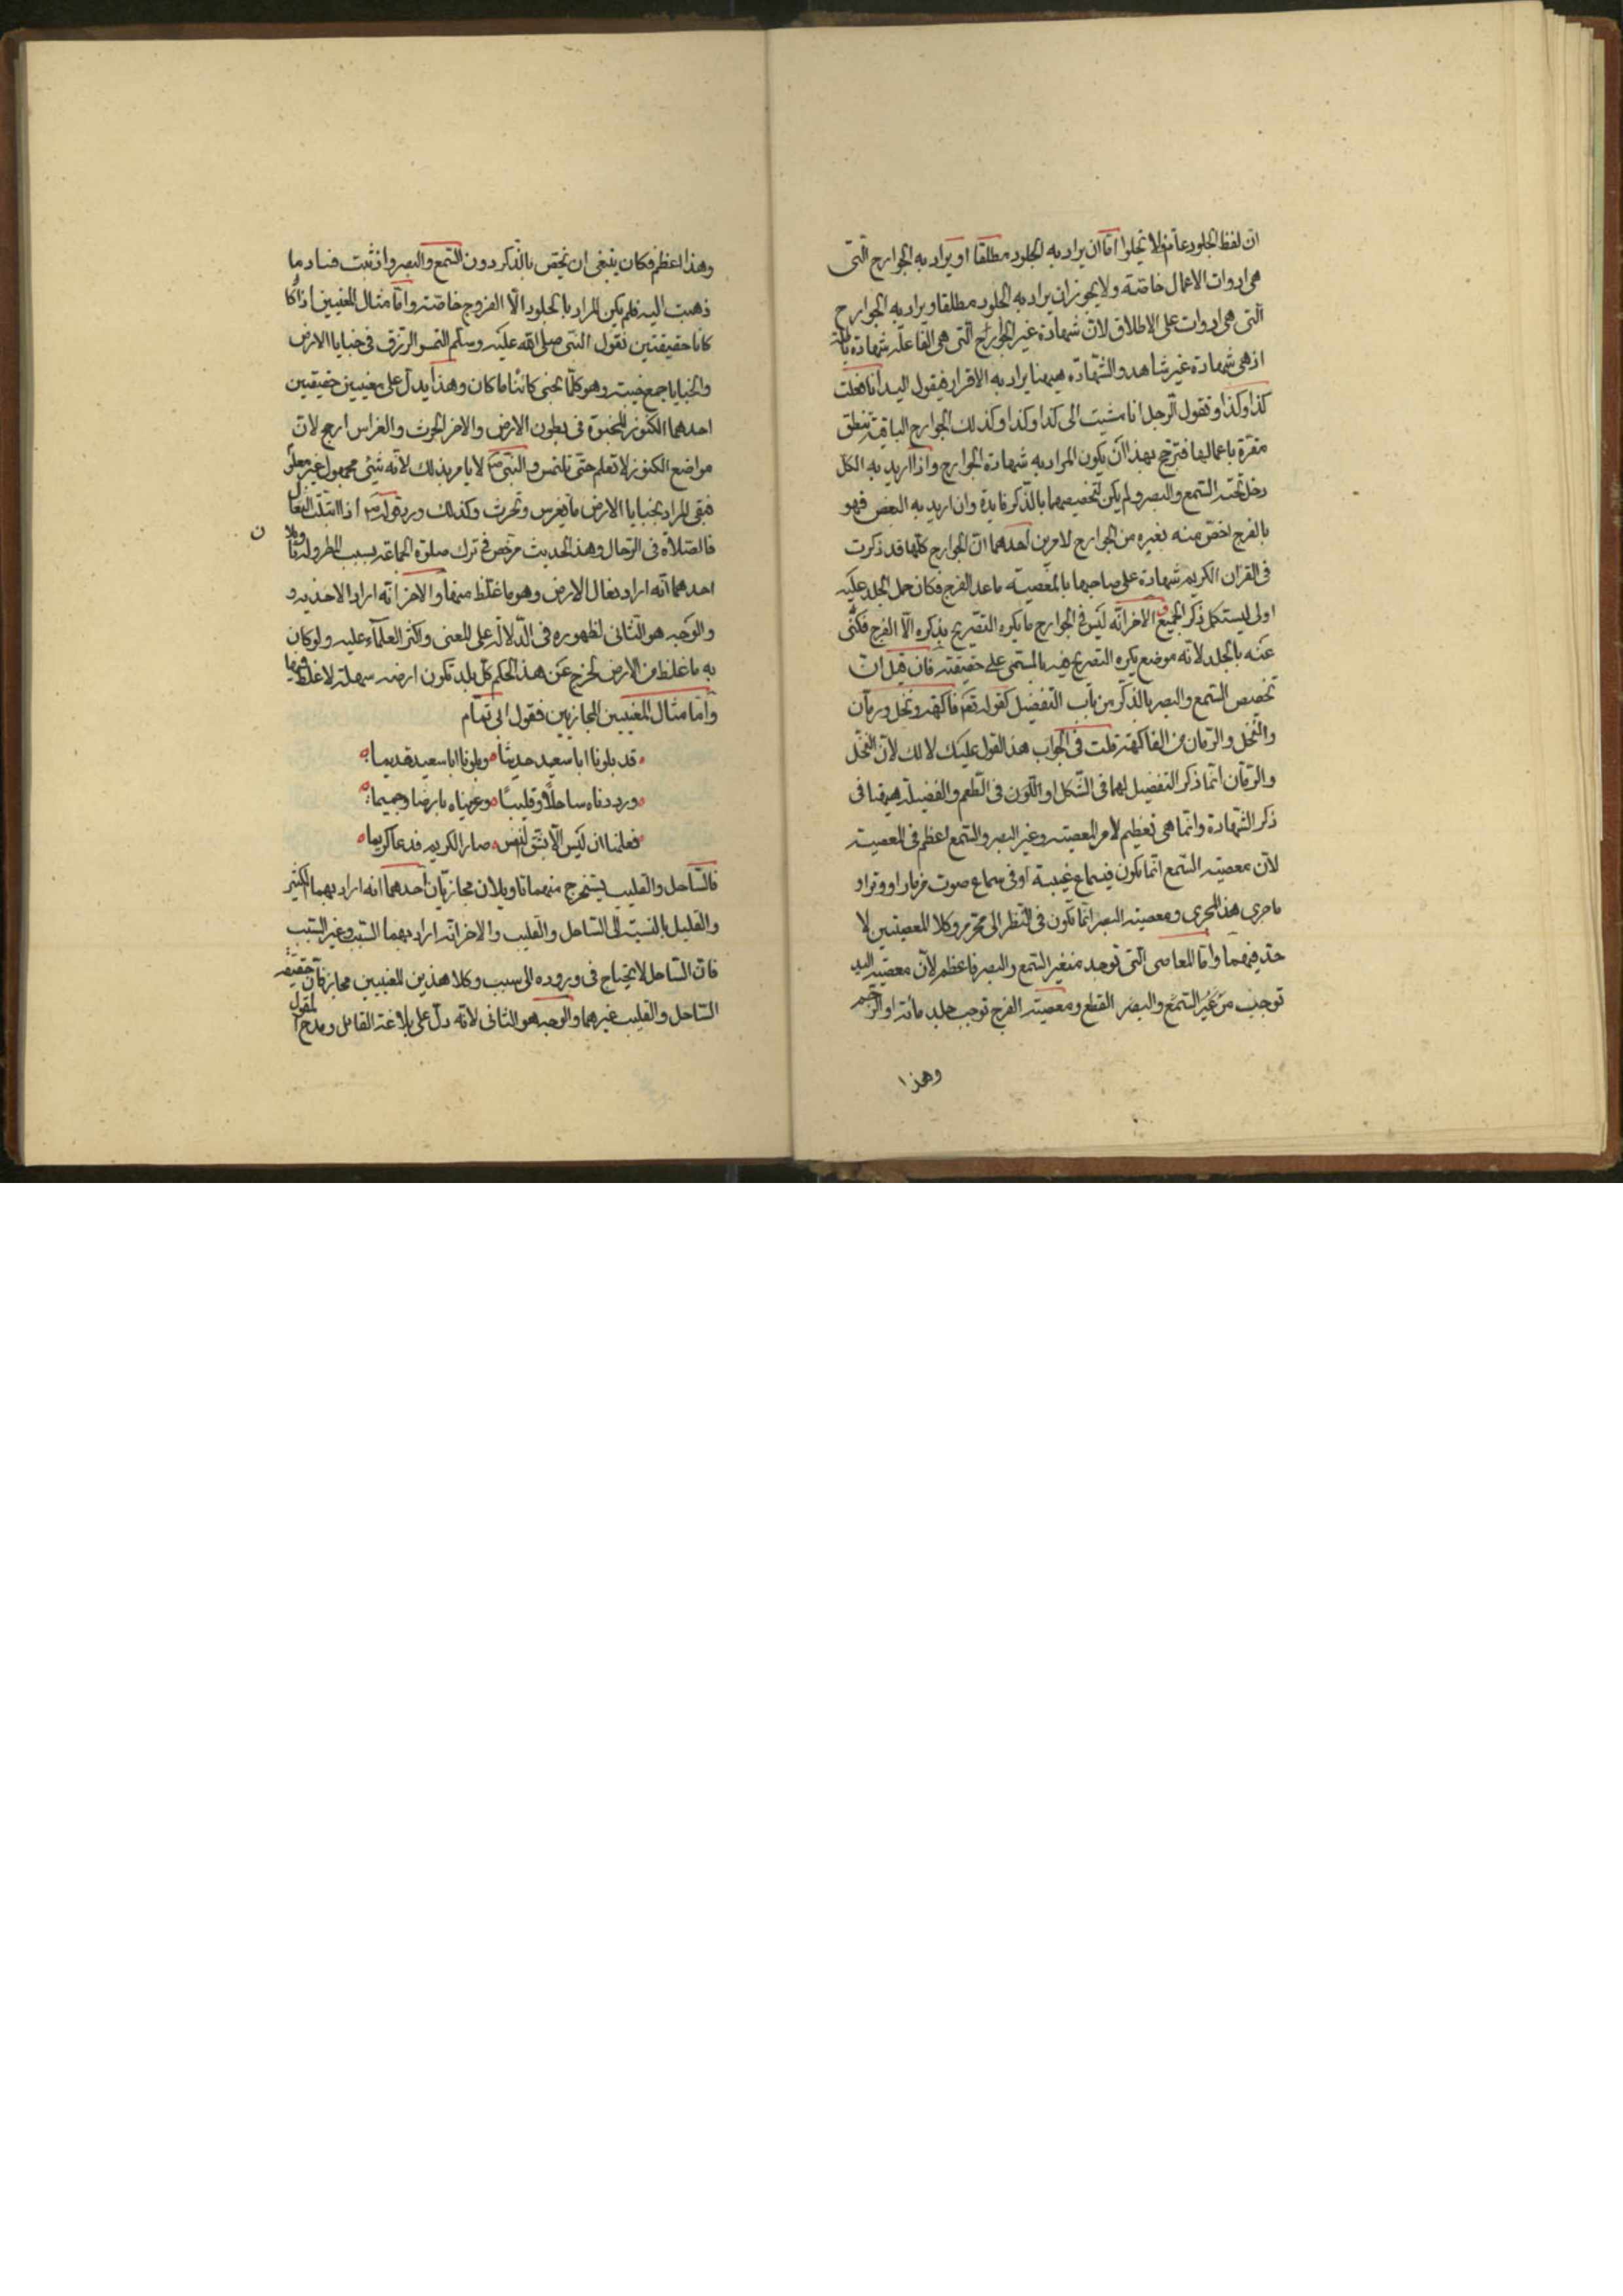 ان لفظ الجلود عام فلا تخلوا اما ان يراد به الجلود مطلقا او يراد به الجوارح التى
هى ادوات الاعمال خاصة ولا يجوز ان يراد به الجلود مطلقا ويراد به الجوارح
التى هى ادوات على الاطلاق لان شهادة غير الجوارح التى هى الفاعلة شهادة باطلة
اذ هى شهادة غير شاهد والشهادة هيهنا يراد به الاقرار فيقول اليد انا فعلت
كذا وكذا وتقول الرجل انا مشيت الى كذا وكذا وكذلك الجوارح الباقية تنطق
مقرة باعمالها فترجح بهذا ان يكون المراد به شهادة الجوارح واذا اريد به الكل
دخل تحته السمع والبصر ولم يكن لتخصيصهما بالذكر فايدة وان اريد به البعض فهو
بالفرج اخص منه بغيره من الجوارح لامرين احدهما ان الجوارح كلها قد ذكرت
فى القران الكريم شهادة على صاحبها بالمعصية ما عدا الفرج فكان حمل الجلد عليه
اولى ليستكمل ذكر الجميع والاخر انه ليس فى الجوارح ما يكره التصريح بذكره الا الفرج فكنى
عنه بالجلد لانه موضع يكره التصريح فيه بالمسمى على حقيقته فان قيل ان
تخصيص السمع والبصر بالذكر من باب التفضيل كقوله تعم فاكهة ونخل ورمان
والنخل والرمان من الفاكهة قلت فى الجواب هذا القول عليك لا لك لان النخل
والرمان انما ذكر التفضيل لهما فى الشكل او اللون فى الطعم والفضيلة هيهنا فى
ذكر الشهادة وانما هى تعظيم لامر المعصية وغير البصر والسمع اعظم فى المعصية
لان معصية السمع انما تكون فى سماع غيبة او فى سماع صوت مزمار او وتر او
ما جرى هذا المجرى ومعصية البصر انما تكون فى النظر الى محرم وكلا المعصيتين لا
حد فيهما واما المعاصى التى توجد من غير السمع والبصر فاعظم لان معصية اليد
توجب من غير السمع والبصر القطع ومعصية الفرج توجب جلد مائة او الرجم
وهذا
وهذا اعظم فكان ينبغى ان تخص بالذكر دون السمع والبصر واذ ثبت فساد ما
ذهبت اليه فلم يكن المراد بالجلود الا الفروج خاصة واما مثال المعنيين اذا كا
كانا حقيقتين فقول النبى صلى الله عليه وسلم التمسوا الرزق فى خبايا الارض
والخبايا جمع خبيته وهو كلما يخبى كائنا ما كان وهذا يدل على معنيين حقيقيين
احدهما الكنوز المخبوة فى بطون الارض والاخر الحرث والغراس ارجح لان
مواضع الكنوز لا تعلم حتى تلتمس والنبى ص لا يامر بذلك لانه شئى مجهول غير معلوم
فبقى المراد بخبايا الارض ما يغرس وتحرث وكذلك ورد قوله ص اذا ابتلت النعال
فالصلاة فى الرحال وهذا الحديث مرخص فى ترك صلوة الجماعة بسبب المطر وله تاويلان
احدهما انه اراد نعال الارض وهو ما غلظ منها والاخر انه اراد الاحذيه و
والوجه هو الثانى لظهوره فى الدلالة على المعنى واكثر العلماء عليه ولو كان
به ما غلظ من الارض لخرج عن هذا الحكم كل بلد تكون ارضه سهلة لا غلظ فيها
واما مثال المعنيين المجازيين فقول ابى تمام
قد بلونا ابا سعيد حديثا وبلونا ابا سعيد قديما
ووردناه ساحلا وقليبا ورعيناه بارضا وجميما
فعلمنا ان ليس الا بشق النفس صار الكريم يدعا كريما
فالساحل والقليب يستخرج منهما تاويلان مجازيان احدهما انه اراد بهما الكثير
والقليل بالنسبة الى الساحل والقليب والاخر انه اراد بهما السبب وغير السبب
فان الساحل لا يحتاج فى وروده الى سبب وكلا هذين المعنيين مجاز فان حقيقة
الساحل والقليب غيرهما والوجه هو الثانى لانه دل على بلاغة القائل ومدح المقول